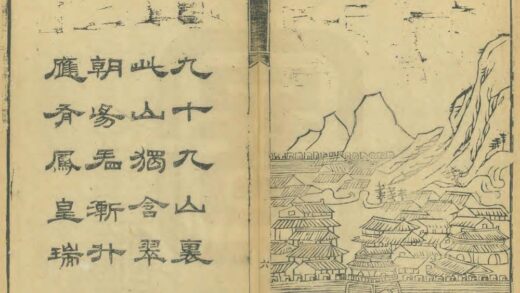 九十九山裏
此山獨含翠
朝昜漸升
應有鳳皇瑞
六